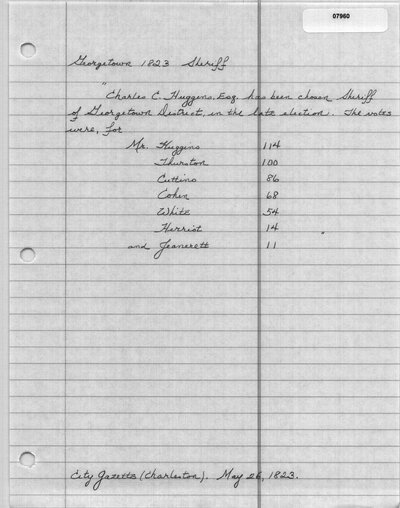 07960
Georgetown 1823 Sheriff
"Charles C. Huggins, Esq. has been chosen Sheriff
of Georgetown District, in the late election. The votes
were, for
Mr. Huggins 114
Thurston 100
Cuttino 86
Cohen 68
White 54
Herriot 14
and Jeanerett 11
City Gazette (Charleston). May 26, 1823.